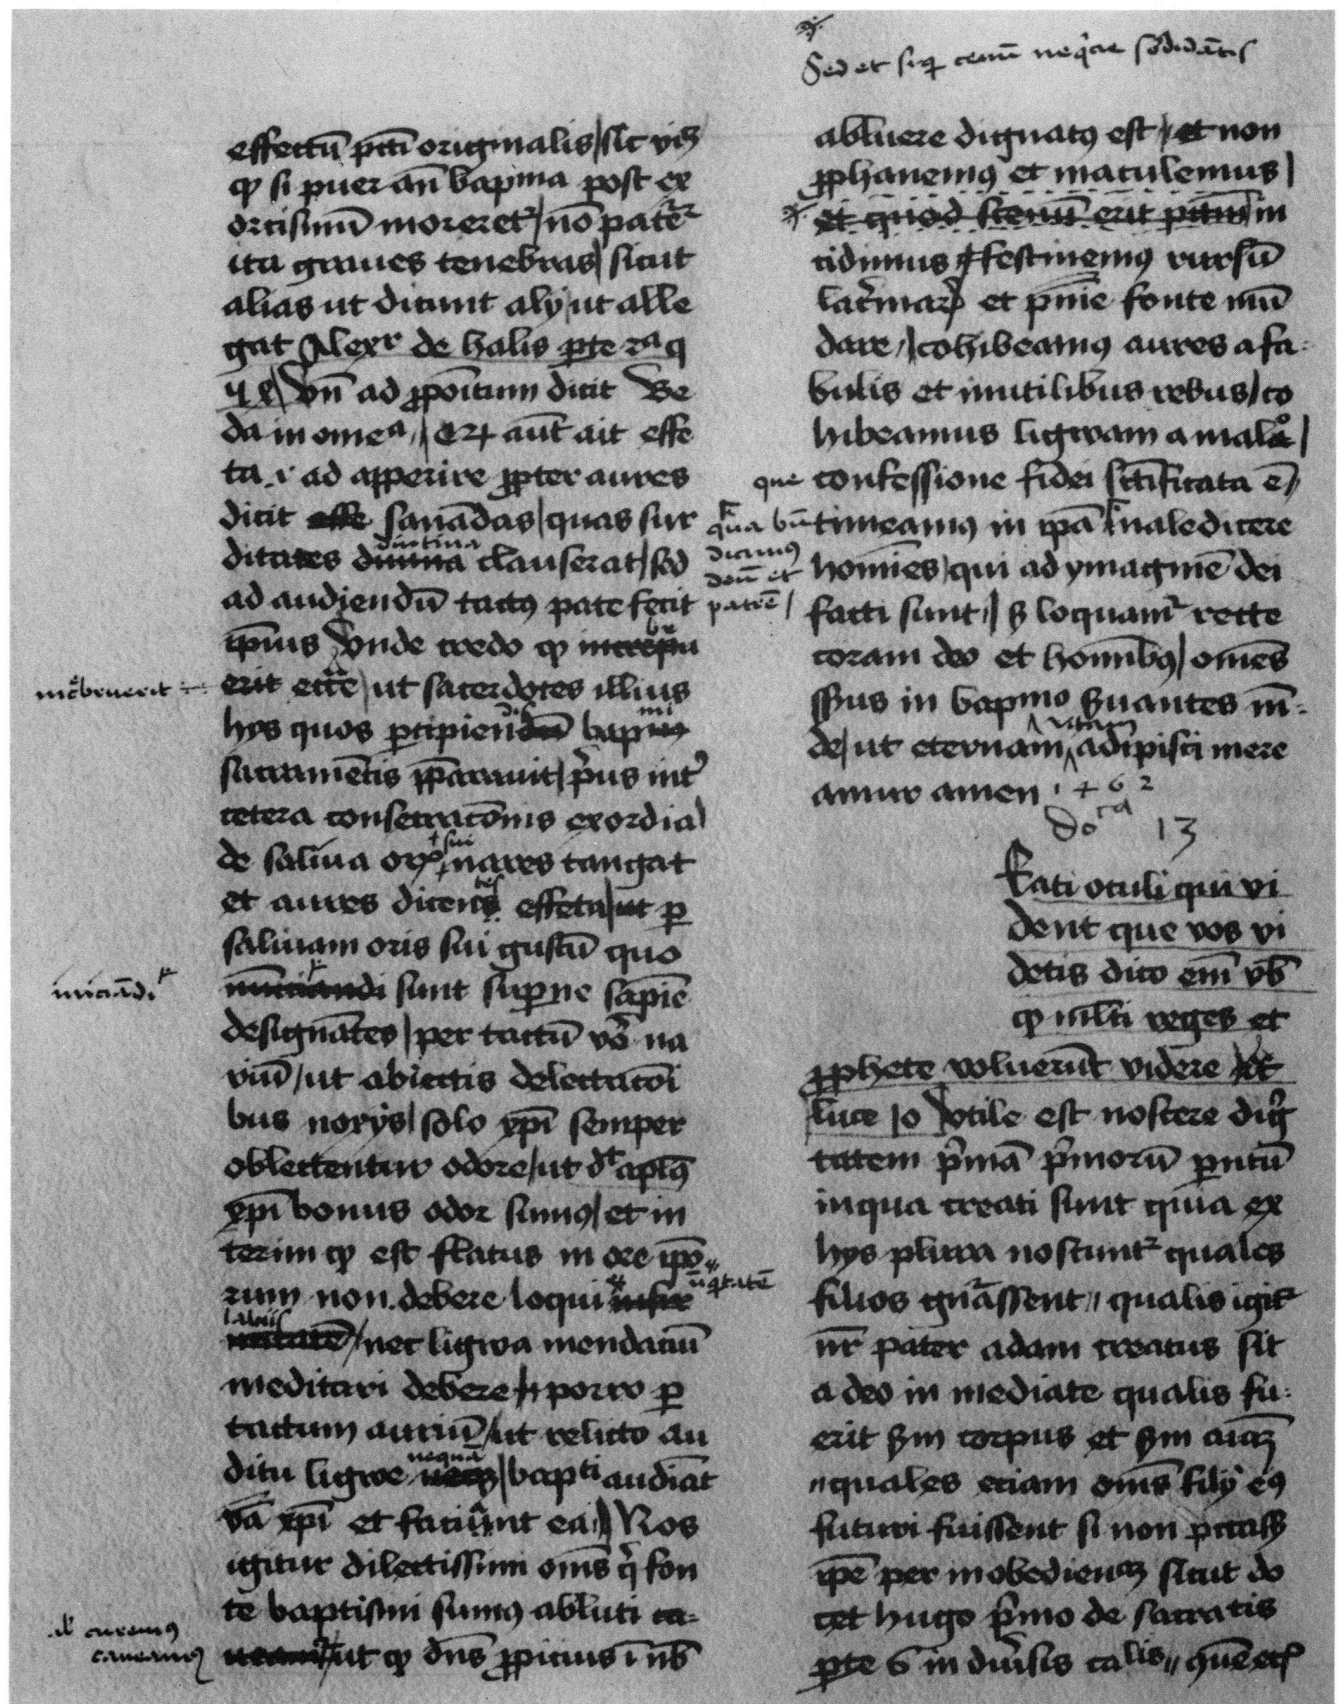 effectū pcti originalis sic
si puer an̄ bapma post ex
orcismū moreretr nō patr
ita graues tenebras sicut
alias ut dicunt alij ut alle
gat Alexr de halis pte 2a q
ad ꝓpoitum dicit Be
da in omea aut̄ ait effe
ta i ad apperire ꝓpter aures
dicit effe sanādas quas sur
ditates diutina clauserat sed
ad audiendū tactꝯ pate fecit
ipīus Vnde credo ꝙ increpu
incͣbruerit
erit ecce ut sacerdotes illius
hys quos ꝑcipiendis bapmi
sacramētis pͥus intͥ
cetera consecracōnis exordia
de saliua oris sui nares tangat
et aures dicentes effeta ut ꝑ
saliuam oris sui gustū quo
iniciādi
iniciandi sunt supne sapīe
designātes per tactū vō na
riū ut abiectis delectacōi
bus noxijs solo xpī semper
oblectentur odore ut dt aplꝯ
xpī bonus odor sumꝯ et in
terim ꝙ est flatus in ore ipo
rum non debere loqui
labijs nec ligwa mendaciū
meditari debere porro ꝑ
tactum auriū ut relicto au
ditu ligwe nequā bapti audiāt
va xpī et faciant ea Nos
igitur dilectissimi oms qͥ fon
te baptismi sumꝯ abluti ca-
curemꝯ
caueamꝯ
ut ꝙ dns ꝓpicius ī nb
Sed et siqͥ cenū neqͥcie sordidātis
abluere dignatꝯ est et non
ꝓphanemꝯ et maculemus
et quod scenū erit in
cidimus festinemꝯ rursū
lacͥmarꝝ et pnīe fonte mū
dare cohibeamꝯ aures a fa-
bulis et inutilibus rebus co
hibeamus ligwam a malo
que confessione fidei scīficata ē
qua bn̄ dicimꝯ deū et patrē
timeamus in ipā maledicere
homīes qui ad ymaginē dei
facti sunt sꝫ loquamͬ recte
coram deo et homībꝯ omēs
in bapmo suantes in-
de ut eternam vitam adipisci mere
amur amen 1462
doca 13
Eati oculi qui vi
dent que vos vi
detis dico em vb
ꝙ mlti reges et
ꝓphete voluerūt videre etc
luce 10 Vtile est noscere digͥ
tatem pͥmā pͥmorū pntū
in qua creati sunt quia ex
hys plura noscuntͬ quales
filios gnāssent qualis igitͬ
nr̄ pater adam creatus sit
a deo in mediate qualis fu-
erit sm̄ corpus et sm̄ aiaꝫ
quales eciam oms filij eꝯ
futuri fuissent si non pccassꝫ
ipē per inobedienciaꝫ sicut do
cet hugo pͥmo de sacratis
pte 6 in diuͥsis calis quē etͥ